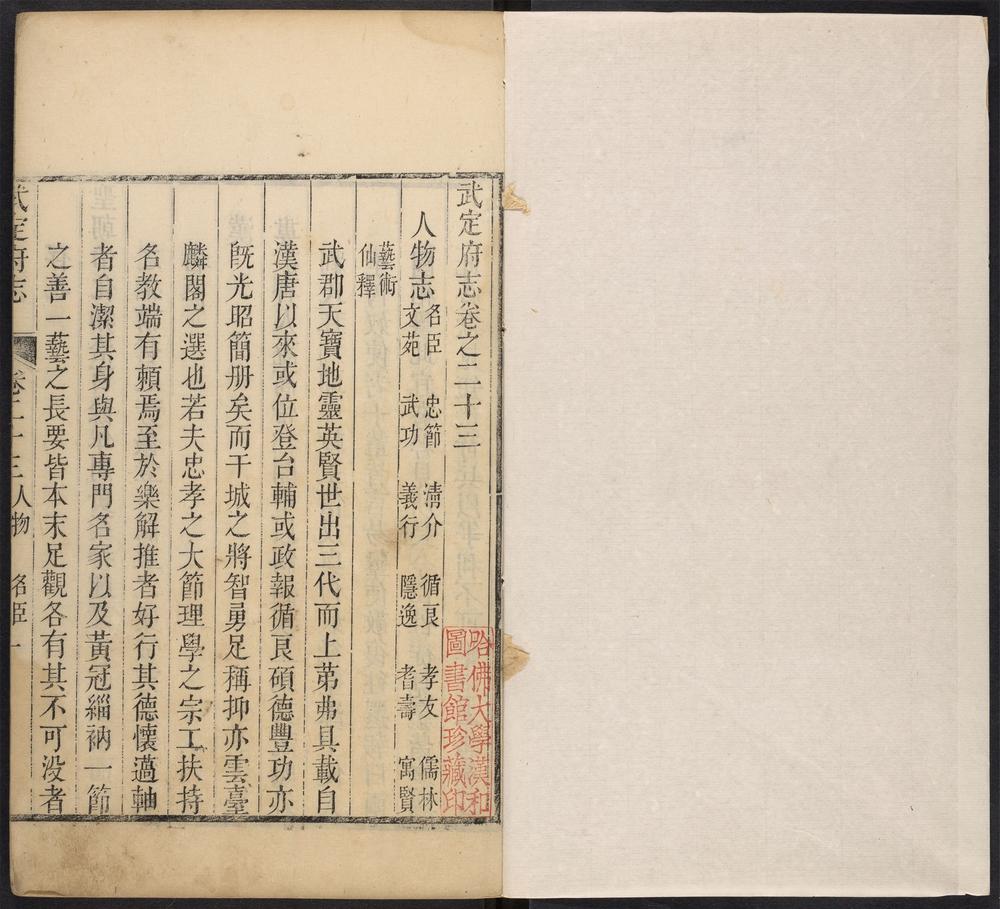 武定府志卷之二十三
人物志
名臣 忠節 清介 循良 孝友 儒林
文苑 武功 義行 隱逸 耆壽 寓賢
藝術
仙釋
武郡天寶地靈英賢世出三代而上苐弗具載自
漢唐以來或位登台輔或政報循良碩德豐功亦
旣光昭簡册矣而干城之將智勇足稱抑亦雲臺
麟閣之選也若夫忠孝之大節理學之宗工扶持
名教端有賴焉至於樂解推者好行其德懷薖軸
者自潔其身與凡專門名家以及黃冠緇衲一節
之善一藝之長要皆本末足觀各有其不可没者
武定府志 卷二十三人物 名臣 一
哈佛大學漢和
圖書館珍藏印